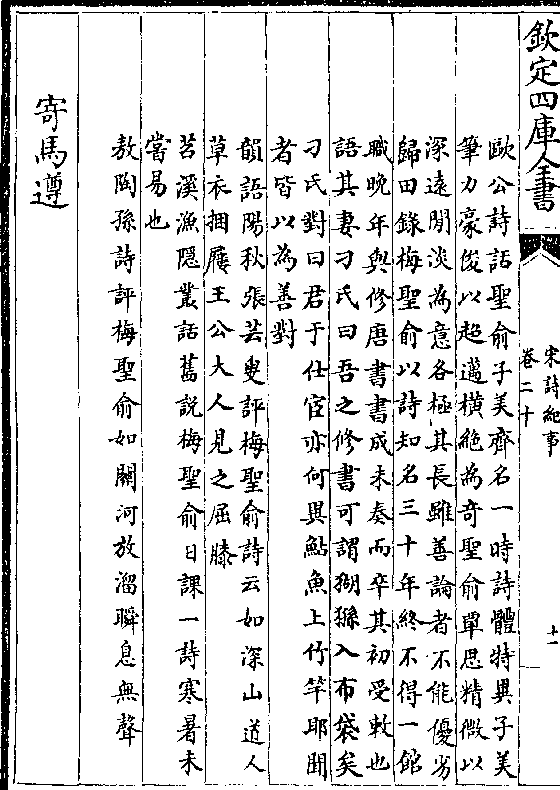 欽定四庫全書
宋詩紀事
卷二十
十一
歐公詩話聖俞子美齊名一時詩體特異子美
筆力豪俊以超邁橫絕為奇聖俞覃思精微以
深遠閒淡為意各極其長雖善論者不能優劣
歸田錄梅聖俞以詩知名三十年終不得一館
職晚年與修唐書書成未奏而卒其初受敕也
語其妻刁氏曰吾之修書可謂猢猻入布袋矣
刁氏對曰君于仕宦亦何異鮎魚上竹竿耶聞
者皆以為善對
韻語陽秋張芸叟評梅聖俞詩云如深山道人
草衣捆屨王公大人見之屈膝
苕溪漁隱叢話舊說梅聖俞日課一詩寒暑未
嘗易也
敖陶孫詩評梅聖俞如關河放溜瞬息無聲
寄馬遵